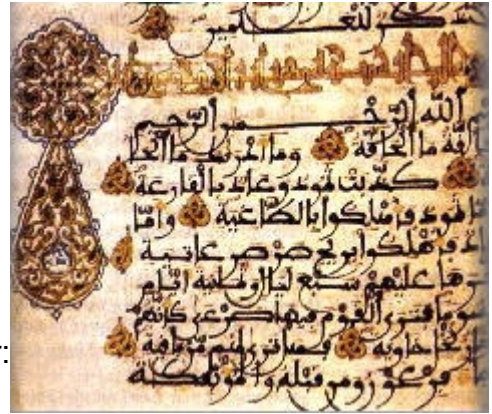 ذكر للعالمين
الله الرحمن الرحيم
اقة ما الحاقة وما ادريك ما الحا
كذبت ثمود وعاد بالقارعة
ثمود فأهلكوا بالطاغية وأما
فأهلكوا بريح صرصر عاتية
ها عليهم سبع ليال وثمنية أيام
وما فترى القوم فيها صرعى كأنهم
نخل خاوية فهل ترى لهم من باقية
فرعون ومن قبله والمؤتفكة